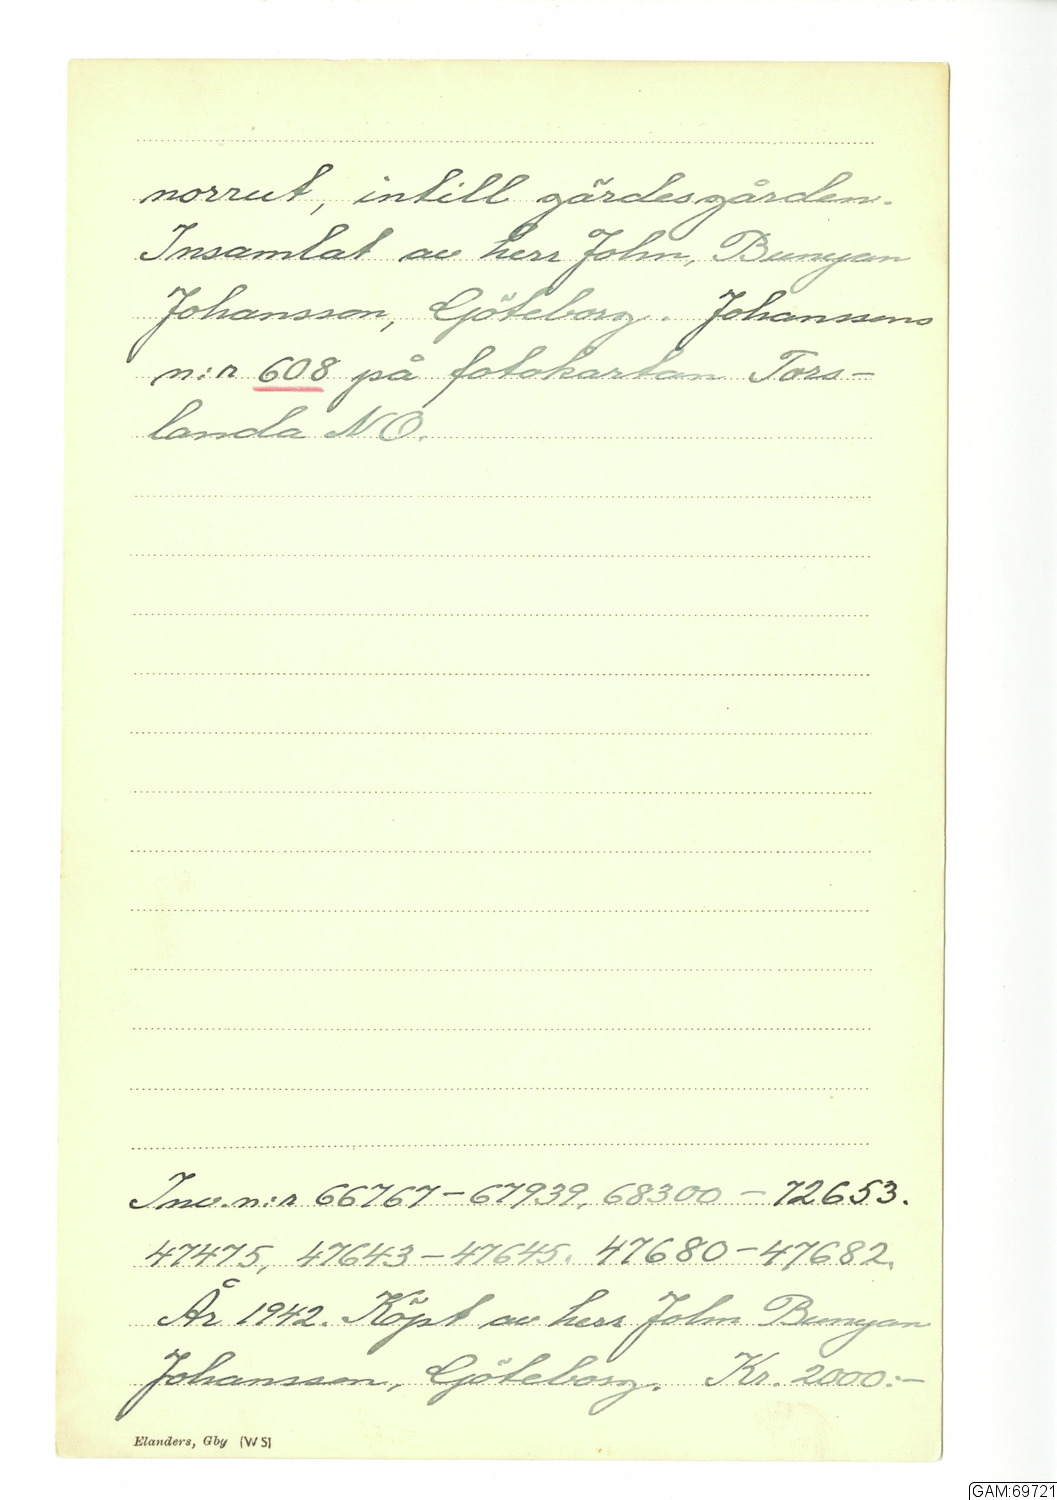 norrut, intill gärdesgården.
Insamlat av herr John, Bunyan
Johansson, Göteborg. Johanssons
n:r 608 på fotokartan Tors-
landa NO.
Inv. n:r 66767-67939, 68300-72653.
47475, 47643-47645. 47680-47682.
År 1942. Köpt av herr John Bunyan
Johansson, Göteborg. Kr. 2000:-
Elanders, Gby (W S)
GAM:69721